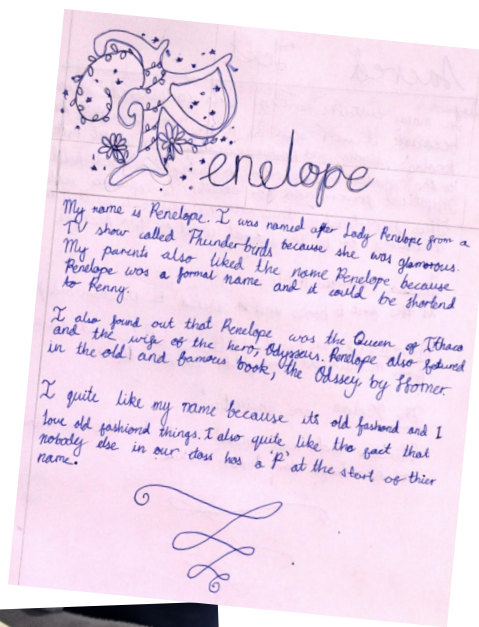 Penelope
My name is Penelope. I was named after Lady Penelope from a
TV show called Thunderbirds because she was glamorous.
My parents also liked the name Penelope because
Penelope was a formal name and it could be shortend
to Penny.
I also found out that Penelope was the Queen of Ithaca
and the wife of the hero, Odysseus. Penelope also fetured
in the old and famous book, the Odssey by Homer.
I quite like my name because its old fashond and I
love old fashiond things. I also quite like the fact that
nobody else in our class has a 'P' at the start of thier
name.